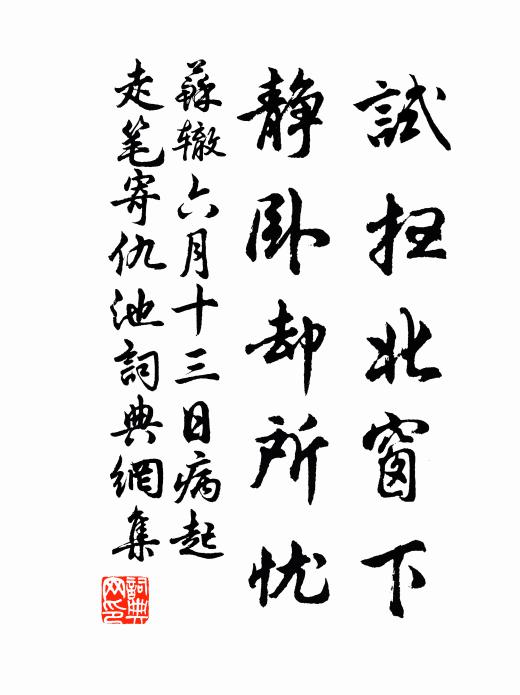 試扫北窗下
静卧却所忧
蘇辙六月十三日病起
走笔寄仇池詞典網集
詞典
网印